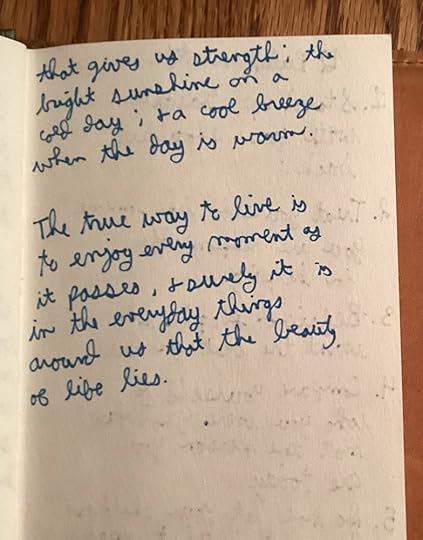 that gives us strength; the
bright sunshine on a
cold day; & a cool breeze
when the day is warm.
The true way to live is
to enjoy every moment as
it passes, & surely it is
in the everyday things
around us that the beauty
of life lies.